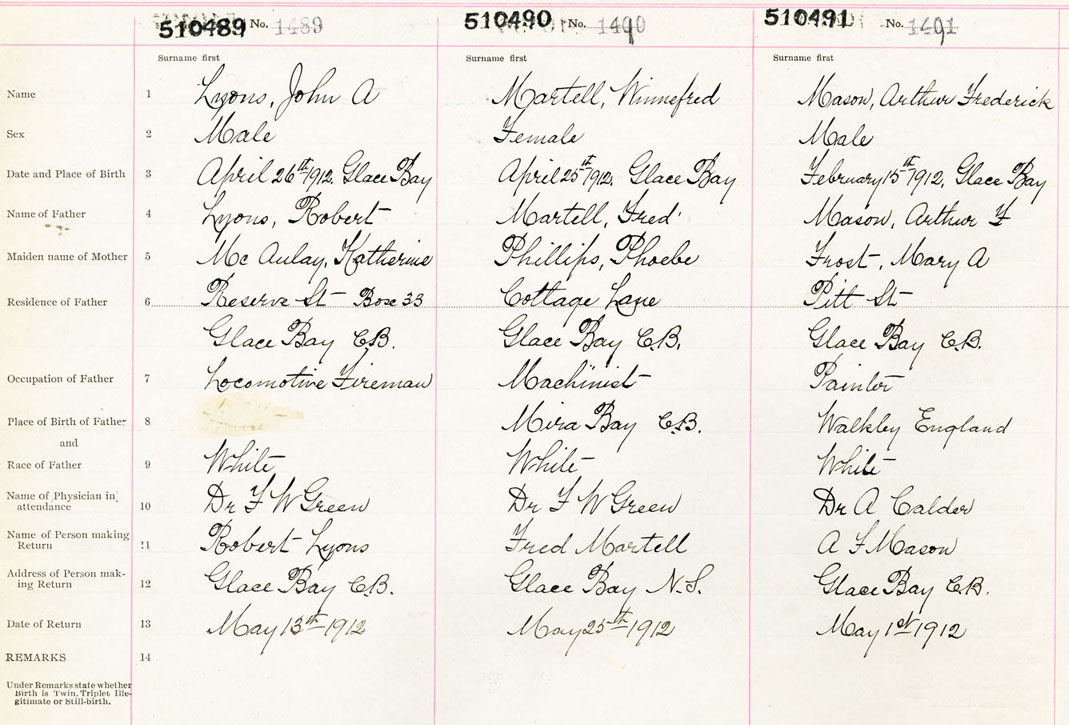 510489 No. 1489 510490 No. 1490 510491 No. 1491
Surname first Surname first Surname first
Name 1 Lyons, John A Martell, Winnefred Mason, Arthur Frederick
Sex 2 Male Female Male
Date and Place of Birth 3 April 26th 1912, Glace Bay April 25th 1912, Glace Bay February 15th 1912, Glace Bay
Name of Father 4 Lyons, Robert Martell, Fred Mason, Arthur F
Maiden name of Mother 5 Mc Aulay, Katherine Phillips, Phoebe Frost, Mary A
Residence of Father 6 Reserve St Box 33 Cottage Lane Pitt St
Glace Bay C.B. Glace Bay C.B. Glace Bay C.B.
Occupation of Father 7 Locomotive Fireman Machinist Painter
Place of Birth of Father 8 Mira Bay C.B. Walkley England
and
Race of Father 9 White White White
Name of Physician in attendance 10 Dr F W Green Dr F W Green Dr A Calder
Name of Person making Return 11 Robert Lyons Fred Martell A F Mason
Address of Person mak-ing Return 12 Glace Bay C.B. Glace Bay N.S. Glace Bay C.B.
Date of Return 13 May 13th 1912 May 25th 1912 May 1st 1912
REMARKS 14
Under Remarks state whether
Birth is Twin, Triplet Ille-
gitimate or Still-birth.